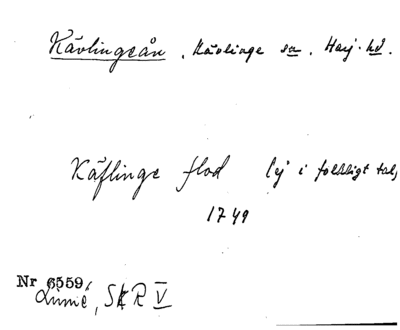 Kävlingeån, Kävlinge sn. Harj. hd.
Käflinge flod (ej i folkligt tal)
1749
Nr 6559.
Linné, SkR V